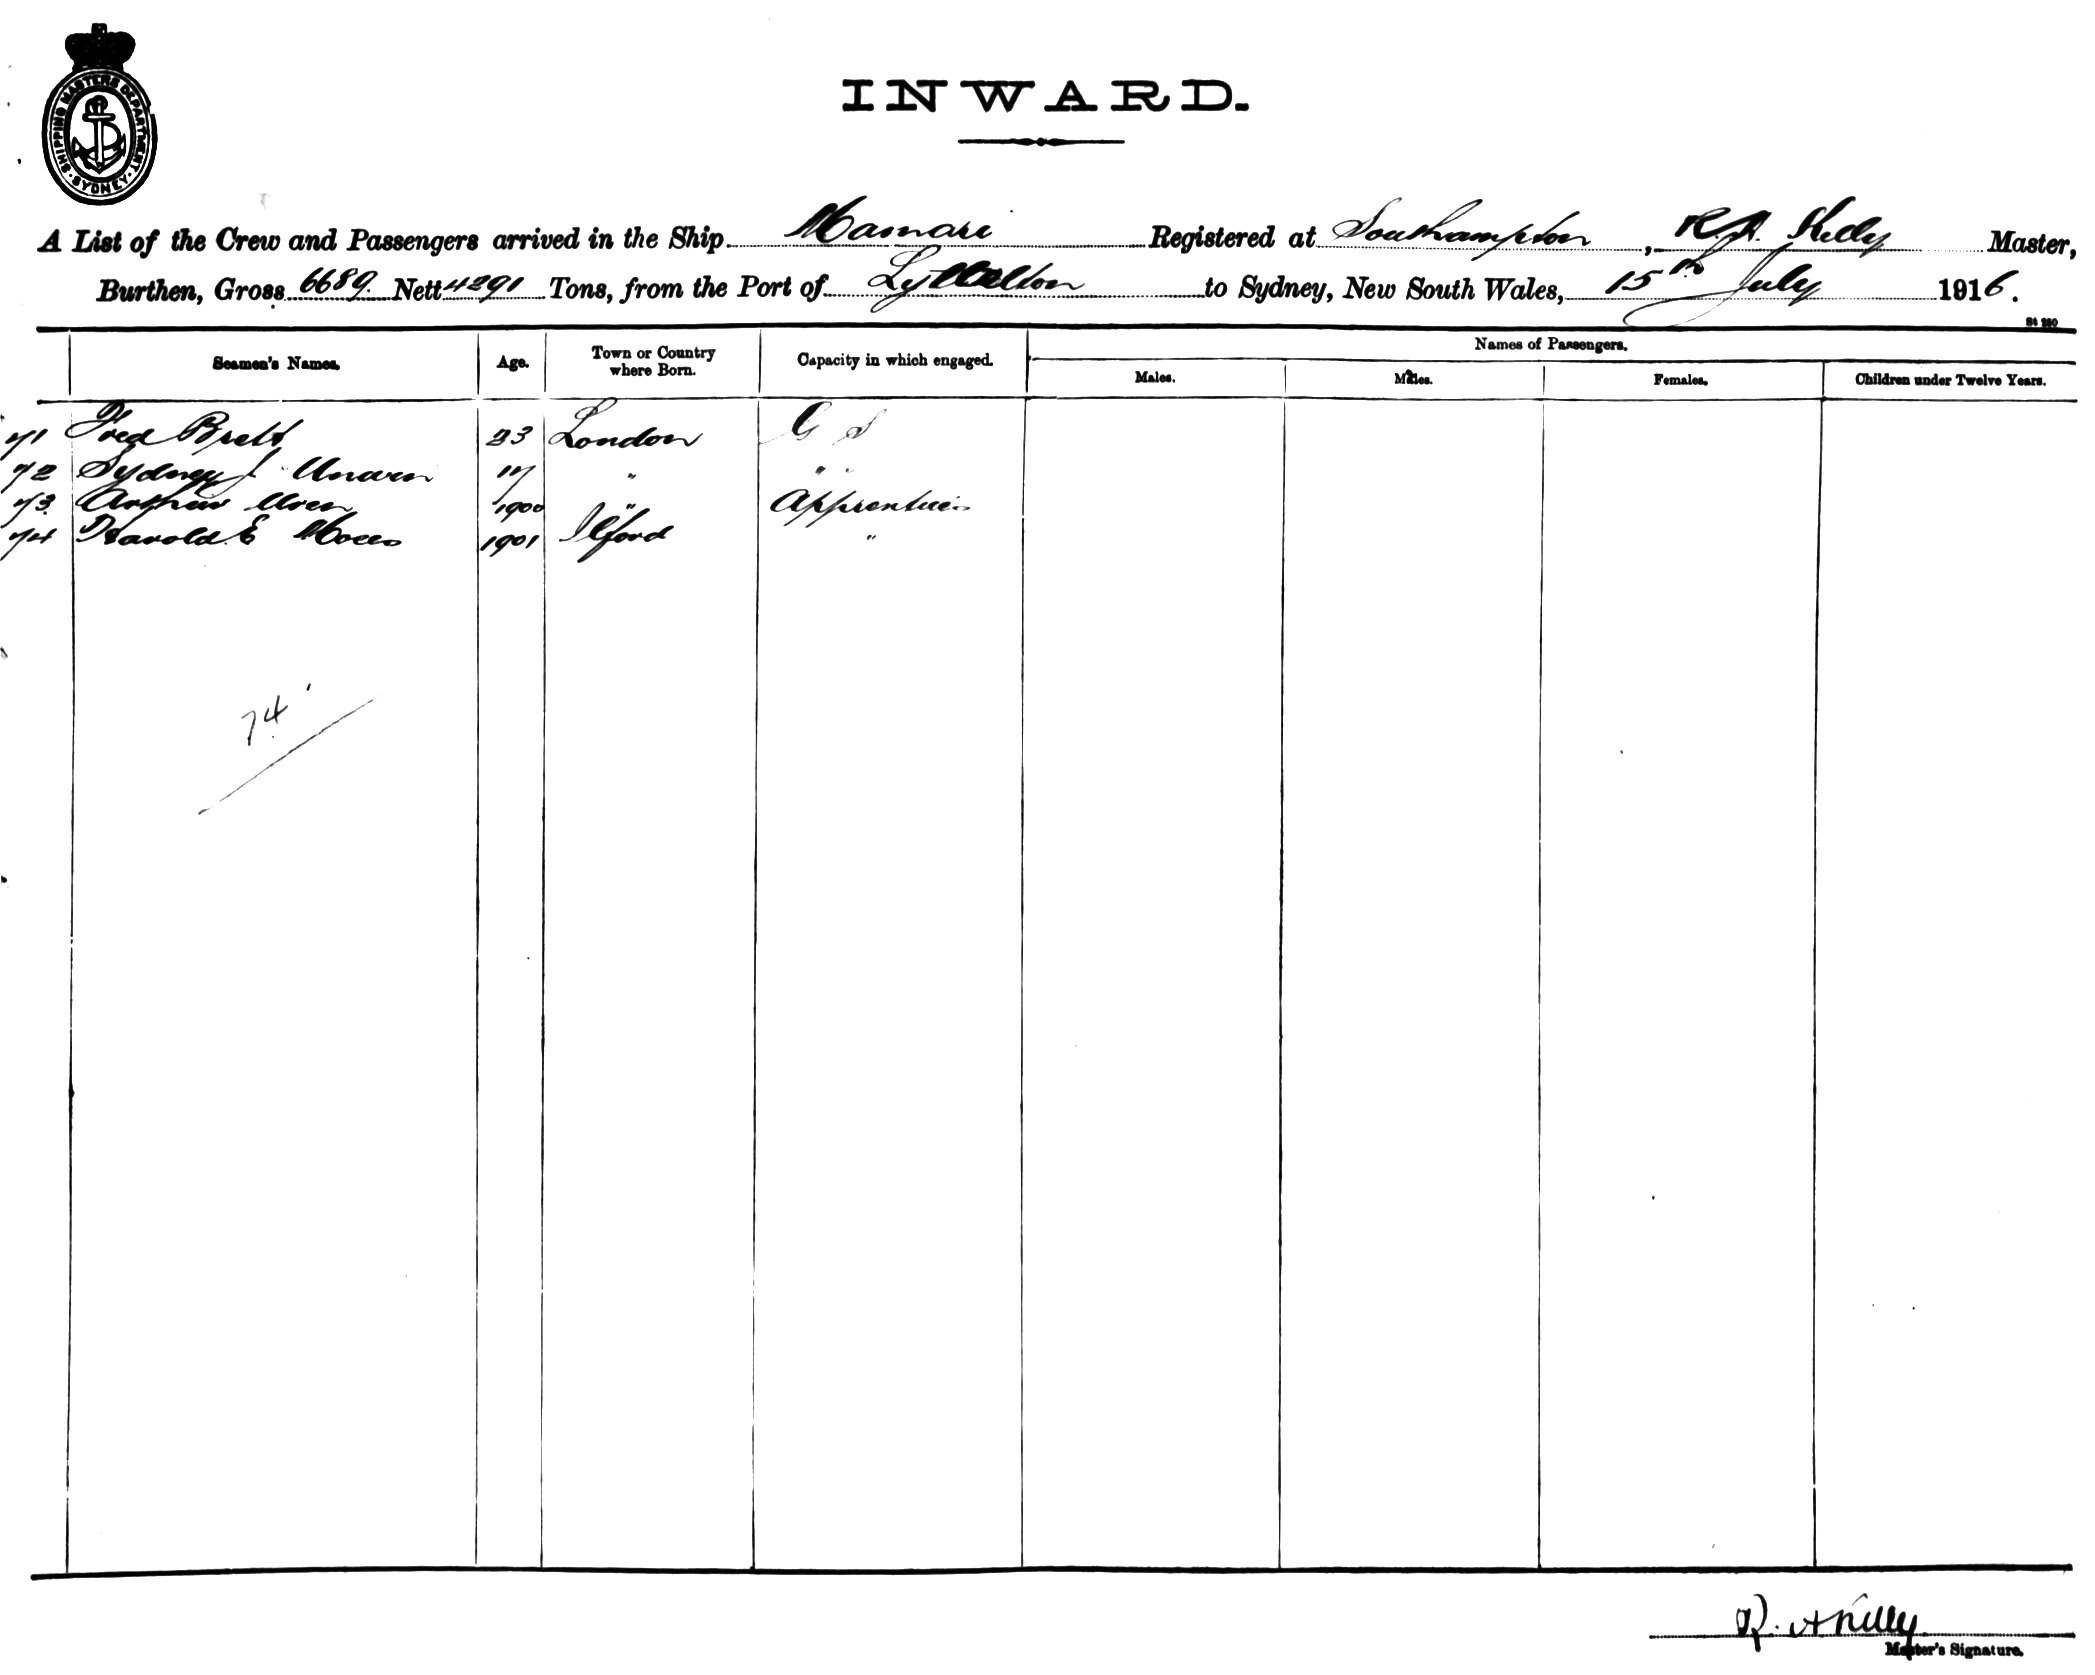 SHIPPING MASTERS DEPARTMENT · SYDNEY ·
INWARD.
A List of the Crew and Passengers arrived in the Ship Mamari Registered at Southampton, R.A. Kelly Master,
Burthen, Gross 6689. Nett 4291 Tons, from the Port of Lyttelton to Sydney, New South Wales, 15th July 1916.
St 250
Seamen's Names. Age. Town or Country where Born. Capacity in which engaged. Names of Passengers.
Males. Males. Females. Children under Twelve Years.
71 Fred Brett 23 London G S
72 Sydney J 17 " " "
73 Arthur 1900 " Apprentice
74 Harold E 1901 Ilford "
74
R. A Kelly
Master's Signature.